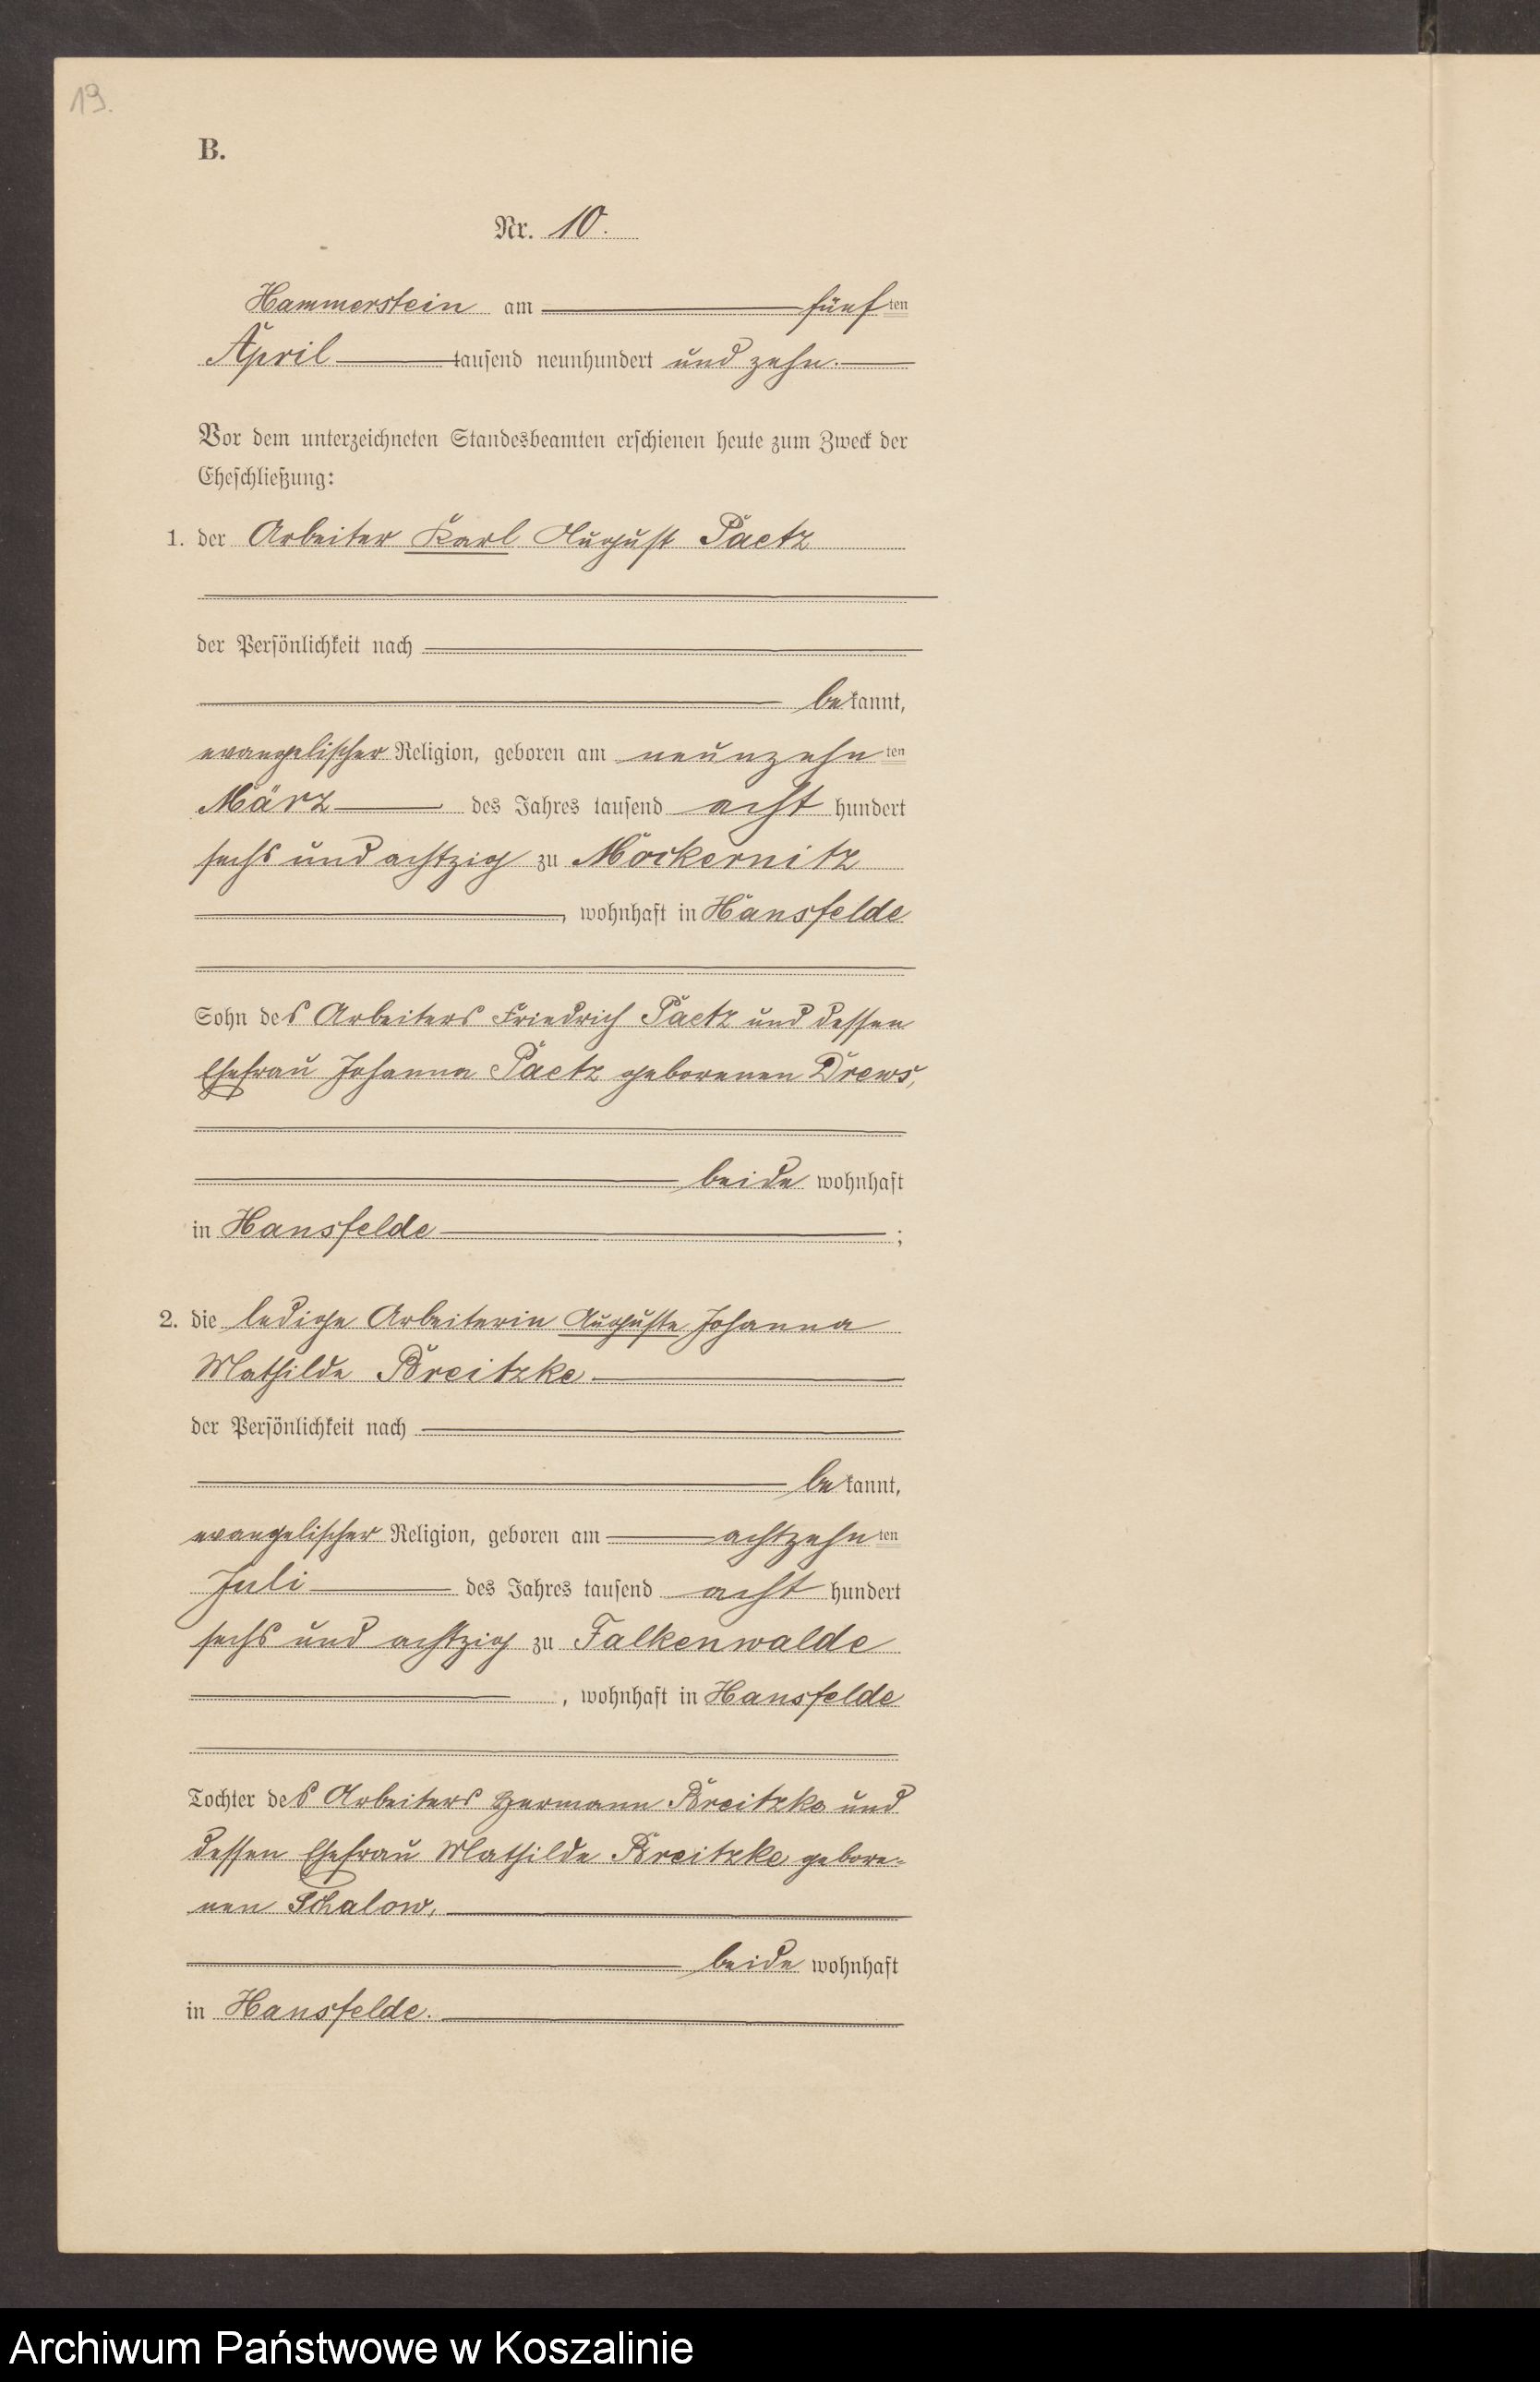 19.
B.
Nr. 10.
Hammerstein am fünften
April tausend neunhundert und zehn.
Vor dem unterzeichneten Standesbeamten erschienen heute zum Zweck der
Eheschließung:
1. der Arbeiter Karl August Paetz
der Persönlichkeit nach
bekannt,
evangelischer Religion, geboren am neunzehnten
März des Jahres tausend acht hundert
sechs und achtzig zu Mockernitz
, wohnhaft in Hansfelde
Sohn des Arbeiters Friedrich Paetz und dessen
Ehefrau Johanna Paetz geborenen Drews,
beide wohnhaft
in Hansfelde ;
2. die ledige Arbeiterin Auguste Johanna
Mathilde Breitzke
der Persönlichkeit nach
bekannt,
evangelischer Religion, geboren am achtzehnten
Juli des Jahres tausend acht hundert
sechs und achtzig zu Falkenwalde
, wohnhaft in Hansfelde
Tochter des Arbeiters Hermann Breitzke und
dessen Ehefrau Mathilde Breitzke gebore-
nen Schalow,
beide wohnhaft
in Hansfelde.
Archiwum Państwowe w Koszalinie